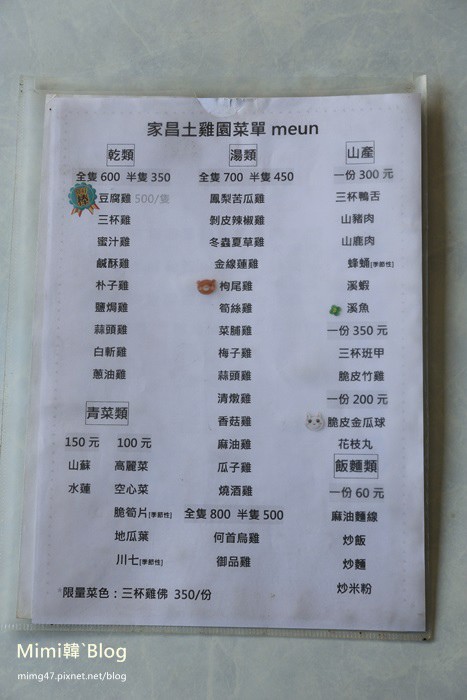 家昌土雞園菜單 meun
乾類
全隻 600 半隻 350
棒
豆腐雞 500/隻
三杯雞
蜜汁雞
鹹酥雞
朴子雞
鹽焗雞
蒜頭雞
白斬雞
蔥油雞
青菜類
150 元
山蘇
水蓮
100 元
高麗菜
空心菜
脆筍片[季節性]
地瓜葉
川七[季節性]
湯類
全隻 700 半隻 450
鳳梨苦瓜雞
剝皮辣椒雞
冬蟲夏草雞
金線蓮雞
枸尾雞
筍絲雞
菜脯雞
梅子雞
蒜頭雞
清燉雞
香菇雞
麻油雞
瓜子雞
燒酒雞
全隻 800 半隻 500
何首烏雞
御品雞
山產
一份 300 元
三杯鴨舌
山豬肉
山鹿肉
蜂蛹[季節性]
溪蝦
溪魚
一份 350 元
三杯班甲
脆皮竹雞
一份 200 元
脆皮金瓜球
花枝丸
飯麵類
一份 60 元
麻油麵線
炒飯
炒麵
炒米粉
限量菜色：三杯雞佛 350/份
Mimi韓`Blog
mimg47.pixnet.net/blog